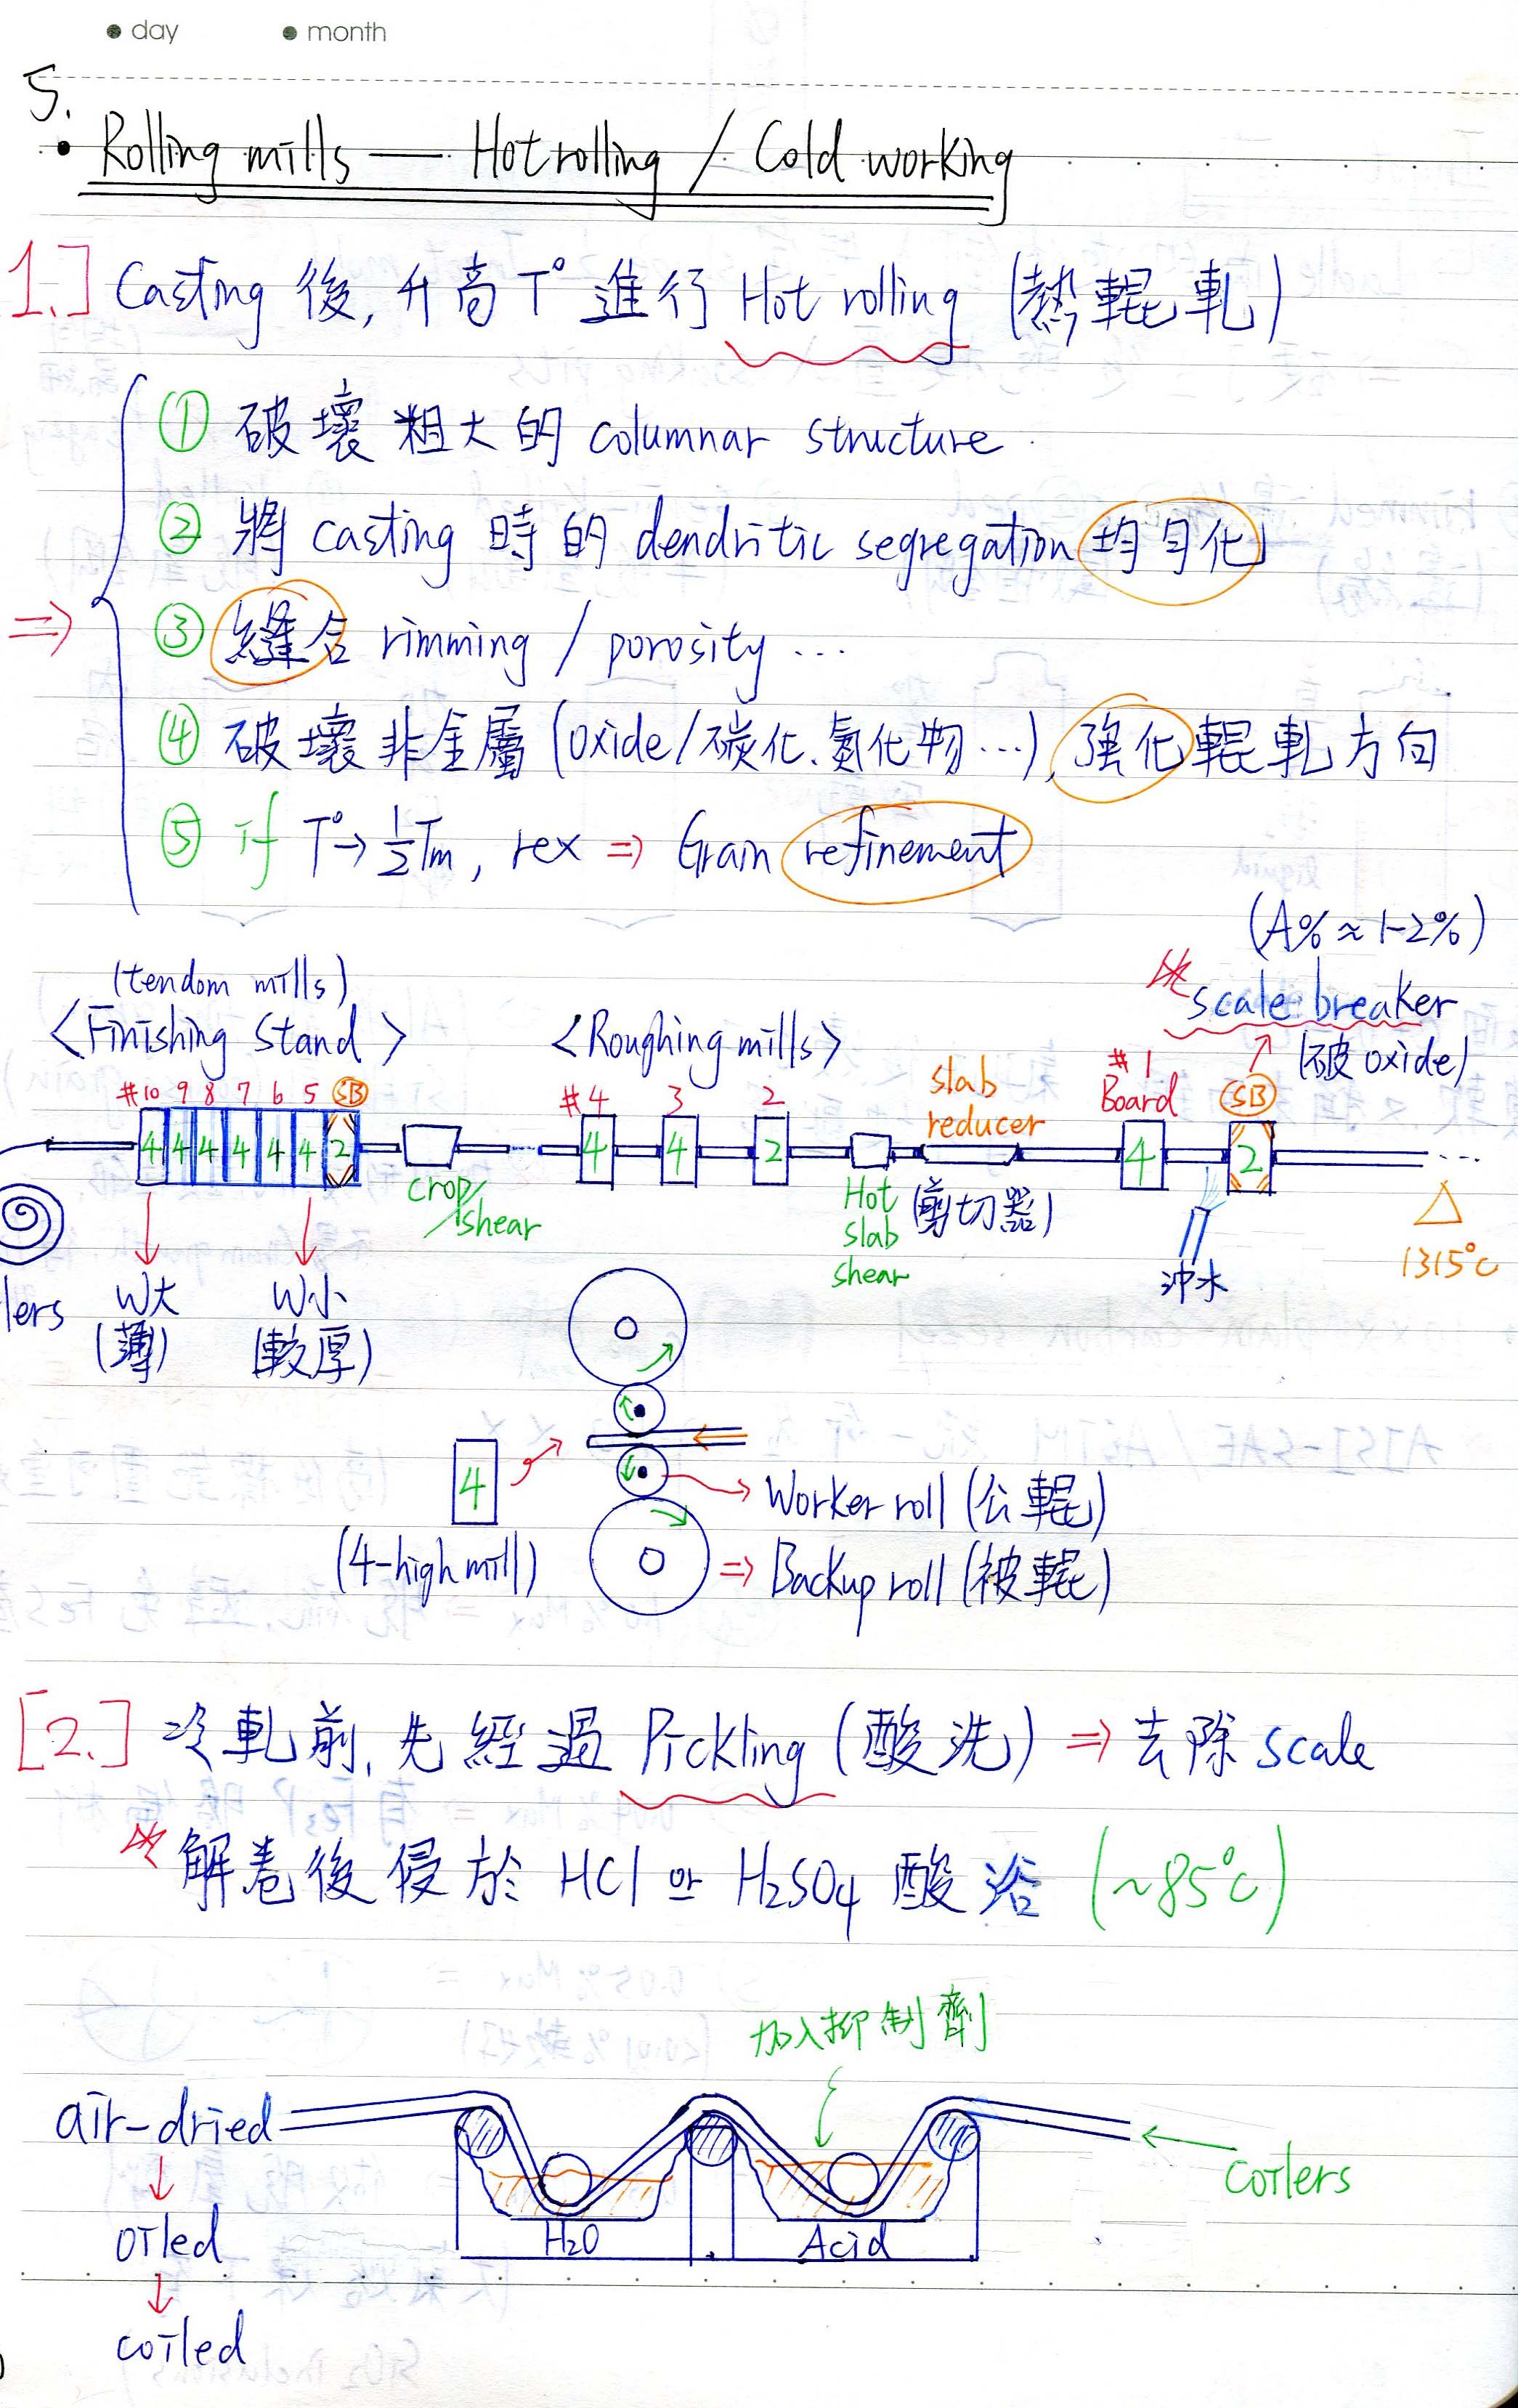 day month
5.
• Rolling mills — Hot rolling / Cold working
1.] Casting 後, 升高 T° 進行 Hot rolling (熱輥軋)
① 破壞粗大的 columnar structure
② 將 casting 時的 dendritic segregation 均勻化
⇒ ③ 縫合 rimming / porosity ...
④ 破壞非金屬 (oxide/碳化、氮化物...), 強化輥軋方向
⑤ if T° → ½Tm, rex ⇒ Grain refinement
(A% ≈ 1-2%)
(tendom mills)
scale breaker
<Finishing Stand> <Roughing mills>
(破 oxide)
slab reducer
#1 Board
SB
#10 9 8 7 6 5 SB
#4 3 2
4 4 4 4 4 4 2
4 4 2
4 2
crop/shear
Hot slab shear
(剪切器)
沖水
△
1315°C
lers
W大 (薄)
W小 (較厚)
4
(4-high mill)
Worker roll (公輥)
⇒ Backup roll (被輥)
[2.] 冷軋前, 先經過 Pickling (酸洗) ⇒ 去除 scale
解卷後侵於 HCl or H₂SO₄ 酸浴 (~85°C)
加入抑制劑
air-dried
coilers
H₂O
Acid
oiled
coiled